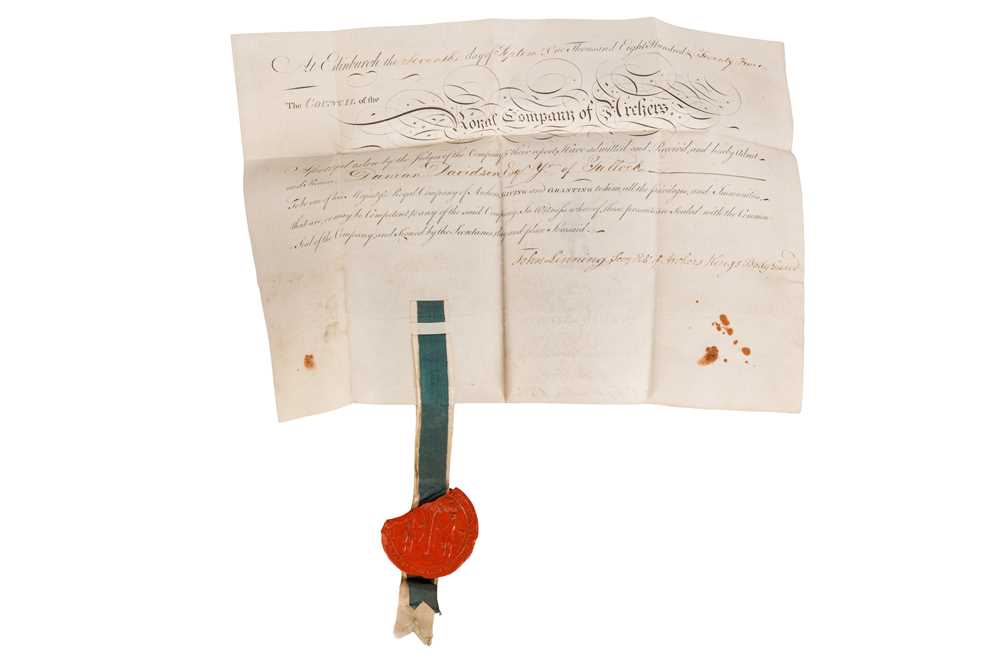 At Edinburgh the Seventh day of Septem One Thousand Eight Hundred & Twenty Four
The COUNCIL of the
Royal Company of Archers,
upon by the Judges of the Company & their report, Have admitted and Received, and hereby Admit
and Receive Duncan Davidson Esqr Yr of Tulloch
To be one of his Majesty's Royal Company of Archers, GIVING and GRANTING to him, all the privileges, and Immunities,
that are, or may be Competent to any of the said Company. In Witness whereof these presents are Sealed with the Common
Seal of the Company, and Signed by the Secretaries day and place foresaid.
John Linning Secy Rl Archers Kings Body Guard